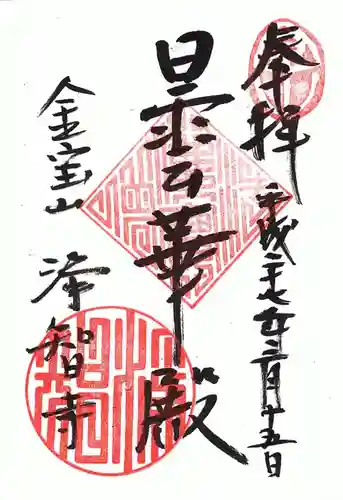 奉拝
平成二十七年二月十五日
曇華殿
金宝山
浄智寺